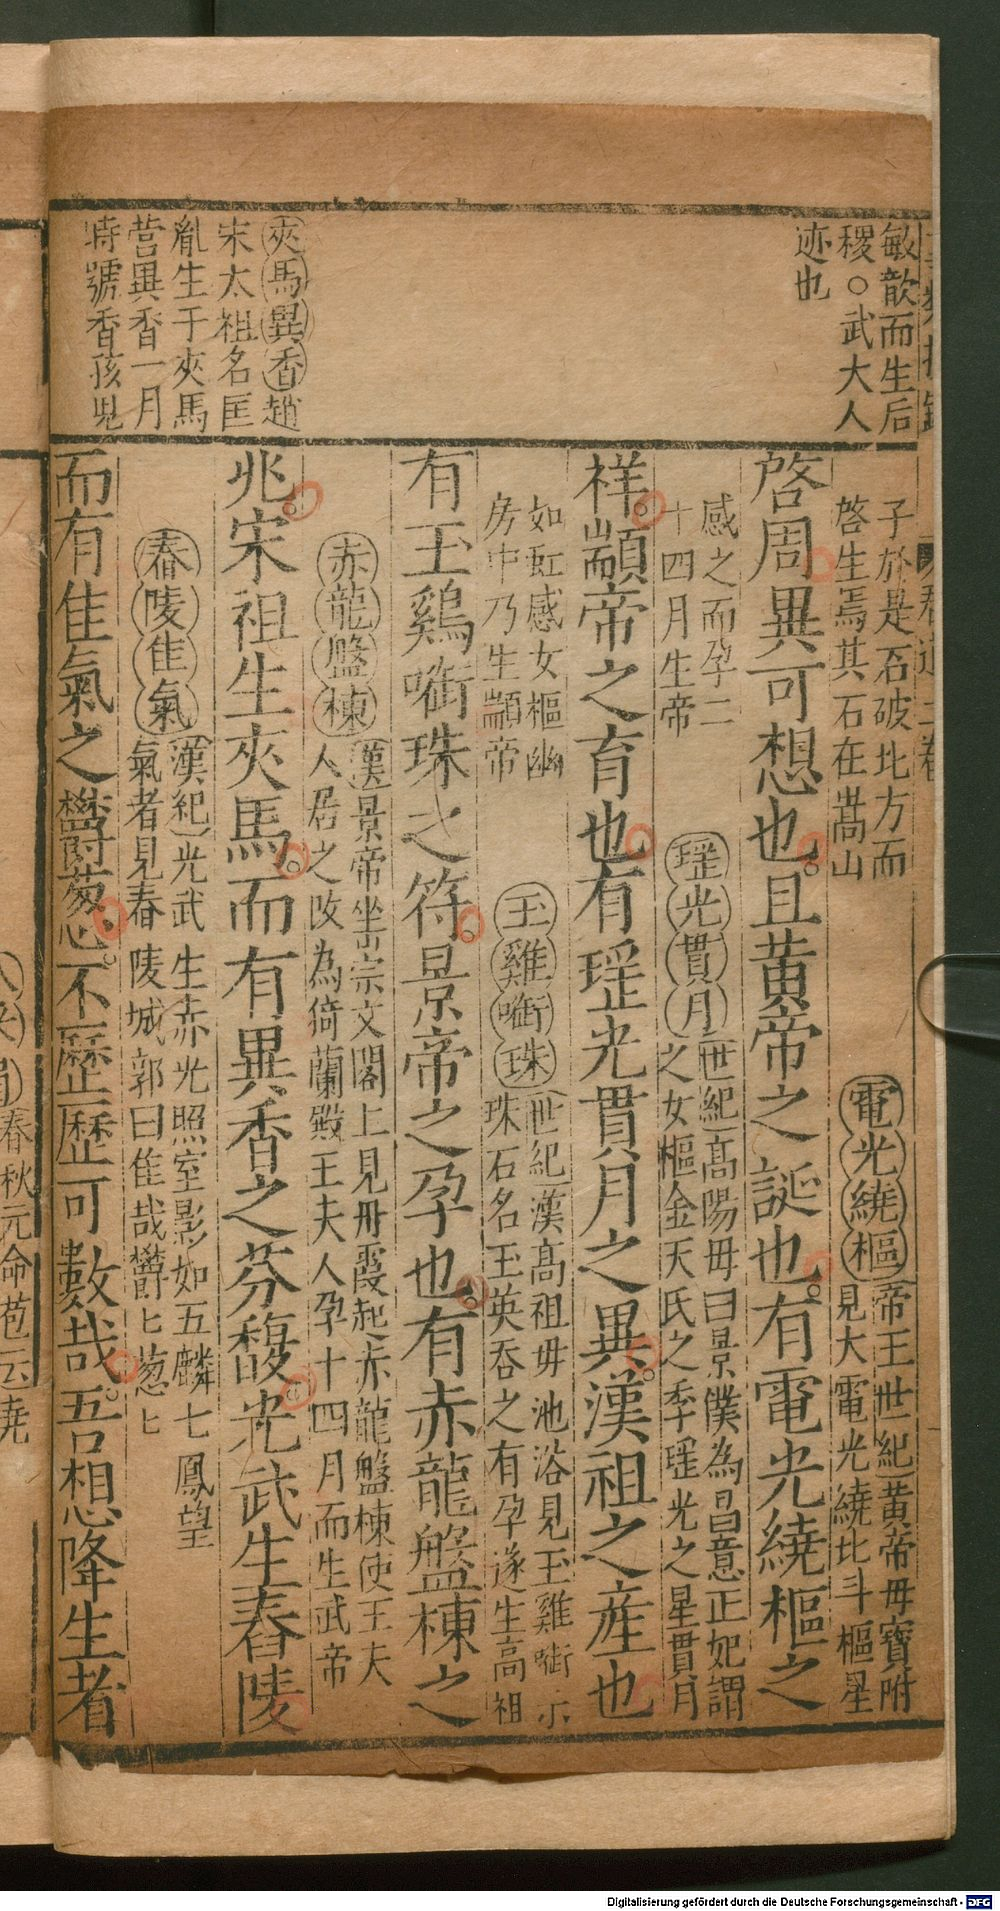 敏歆而生后
稷○武大人
迹也
夾馬異香趙
宋太祖名匡
胤生于夾馬
營異香一月
時號香孩兒
子於是石破北方而
啓生焉其石在嵩山
啓周異可想也且黄帝之誕也有電光繞樞之
電光繞樞帝王世紀黄帝母寶附
見大電光繞北斗樞星
感之而孕二
十四月生帝
祥顓帝之育也有瑶光貫月之異漢祖之産也
瑶光貫月世紀高陽母曰景僕為昌意正妃謂
之女樞金天氏之季瑶光之星貫月
如虹感女樞幽
房中乃生顓帝
有玉鷄啣珠之符景帝之孕也有赤龍盤棟之
玉雞啣珠世紀漢高祖母池浴見玉雞啣示
珠石名玉英吞之有孕遂生高祖
赤龍盤棟漢景帝坐崇文閣上見丹霞起赤龍盤棟使王夫
人居之改為猗蘭殿王夫人孕十四月而生武帝
兆宋祖生夾馬而有異香之芬馥光武生舂陵
舂陵佳氣漢紀光武生赤光照室影如五麟七鳳望
氣者見舂陵城郭曰佳哉欝匕葱匕
而有佳氣之欝葱不歷歷可數哉吾想降生者
春秋元命苞云堯
Digitalisierung gefördert durch die Deutsche Forschungsgemeinschaft - DFG